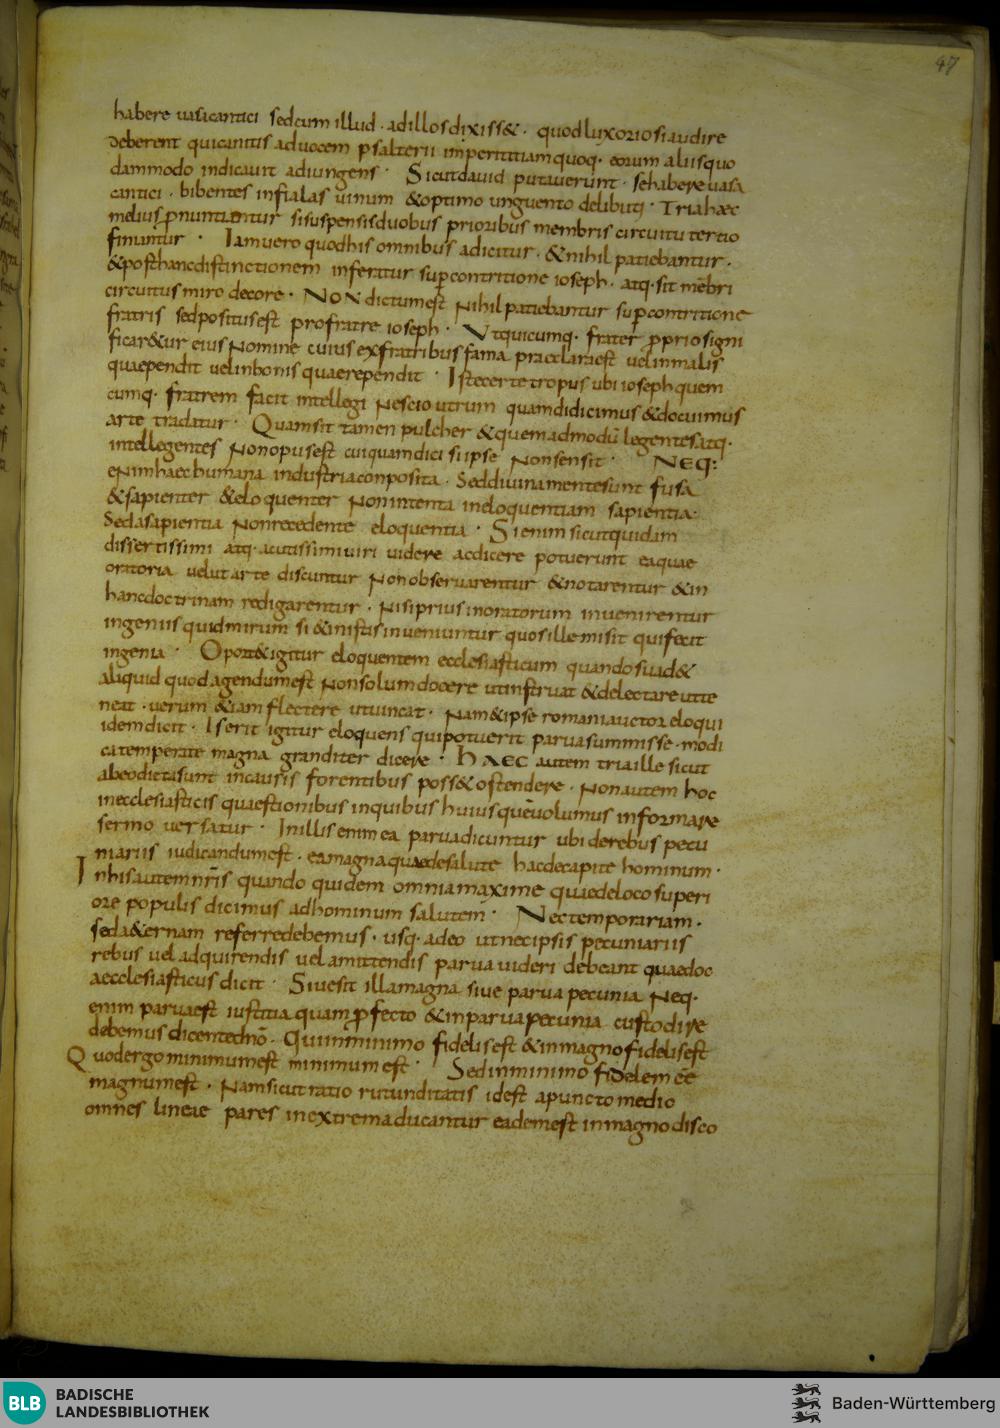 47
habere uasicantici sedcum illud · adillosdixiss& · quodluxoriosiaudire
deberent quicanitis aduocem psalterii imperititiamquoq· eorum aliisquo
dammodo indicauit adiungens · Sicutdauid putauerunt · sehabereuasa
cantici · bibentes infialas uinum &optimo unguento delibuti · Triahaec
melius p̱nuntiantur sisuspensisduobus prioribus membris circuitu tertio
finiantur · Iamuero quodhis omnibus adicitur · &nihil patiebantur ·
&posthancdistinctionem inferatur sup̱contritione ioseph · atq· sit mēbri
circuitus miro decore · NON dictumest Nihilpatiebantur sup̱contritione
fratris sedpositusest profratre ioseph · Vtquicumq· frater p̱priosigni
ficar&ur eius Nomine cuius exfratribus fama praeclaraest uelinmalis
quaependit uelinbonis quaerependit · Istecerte tropus ubi ioseph quem
cumq· fratrem facit intellegi Nescio utrum quamdidicimus &docuimus
arte tradatur · Quamsit tamen pulcher &quemadmodū legentesatq·
intellegentes Nonopusest cuiquamdici siipse Nonsensit · NEQ:
eNimhaechumana industriaconposita · Seddiuinamentesunt fusa
&sapienter &eloquenter Nonintenta ineloquentiam sapientia·
Sedasapientia Nonrecedente eloquentia · Sienim sicutquidam
dissertissimi atq· acutissimiuiri uidere acdicere potuerunt eaquae
oratoria uelutarte discuntur Nonobseruarentur &notarentur &in
hancdoctrinam redigarentur · Nisiprius inoratorum inuenirentur
ingeniis quidmirum si &inistisinueniuntur quosille misit quifecit
ingenia · Oport&igitur eloquentem ecclesiasticum quandosuad&
aliquid quodagendumest Nonsolumdocere utinstruat &delectare utte
neat · uerum &iam flectere utuincat · Nam&ipse romaniauctor eloqui
idemdicit · Iserit igitur eloquens quipotuerit paruasummisse · modi
catemperate magna granditer dicere · HAEC autem triaille sicut
abeodictasunt incausis forentibus poss&ostendere · Nonautem hoc
inecclesiasticis quaestionibus inquibus huiusquēuolumus informare
sermo uersatur · Inillisenimea paruadicuntur ubi derebus pecu
niariis iudicandumest · eamagnaquaedesalute hacdecapite hominum ·
Inhisautemnr̄is quando quidem omniamaxime quaedeloco superi
ore populis dicimus adhominum salutem · Nectemporariam ·
seda&ernam referredebemus · usq· adeo utnecipsis pecuniariis
rebus uel adquirendis uel amittendis parua uideri debeant quaedoc
aecclesiasticus dicit · Siuesit illamagna siue parua pecunia Neq·
enim paruaest iustitia quam p̱fecto &inparuapecunia custodire
debemus dicentednō · Quiinminimo fidelisest &inmagnofidelisest
Quodergominimumest minimum est · Sedinminimo fidelem ēē
magnumest · Namsicutratio rutunditatis idest apunctomedio
omnes lineae pares inextremaducantur eademest inmagnodisco
BLB
BADISCHE
LANDESBIBLIOTHEK
Baden-Württemberg